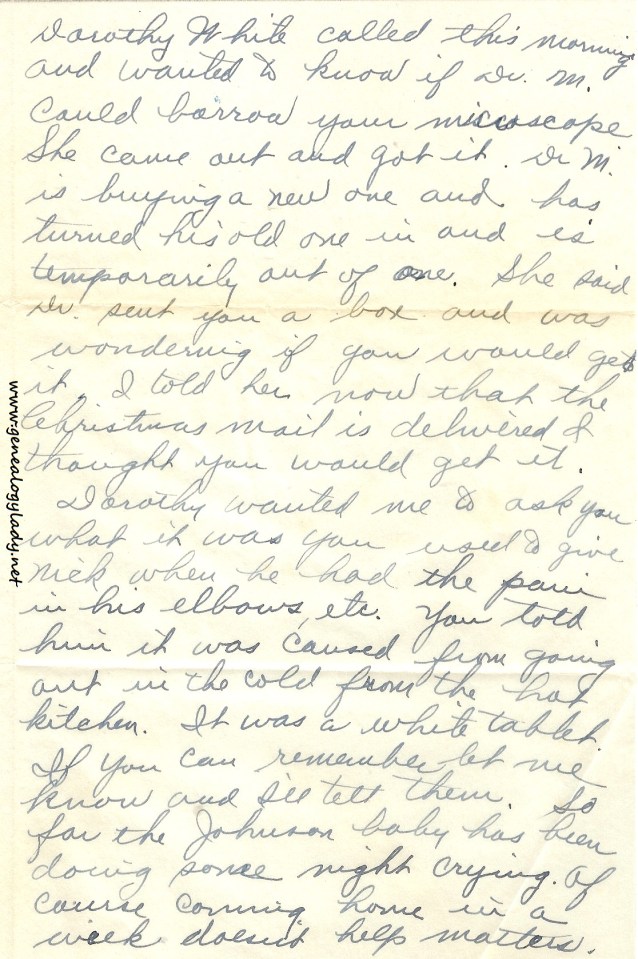 Dorothy White called this morning
and wanted to know if Dr. M.
could borrow your microscope
She came out and got it. Dr M.
is buying a new one and has
turned his old one in and is
temporarily out of one. She said
Dr. sent you a box and was
wondering if you would get
it. I told her now that the
Christmas mail is delivered I
thought you would get it.
Dorothy wanted me to ask you
what it was you used to give
Nick when he had the pain
in his elbows, etc. You told
him it was caused from going
out in the cold from the hot
kitchen. It was a white tablet.
If you can remember let me
know and I'll tell them. So
far the Johnson baby has been
doing some night crying. Of
course coming home in a
week doesn't help matters.
www.genealogylady.net